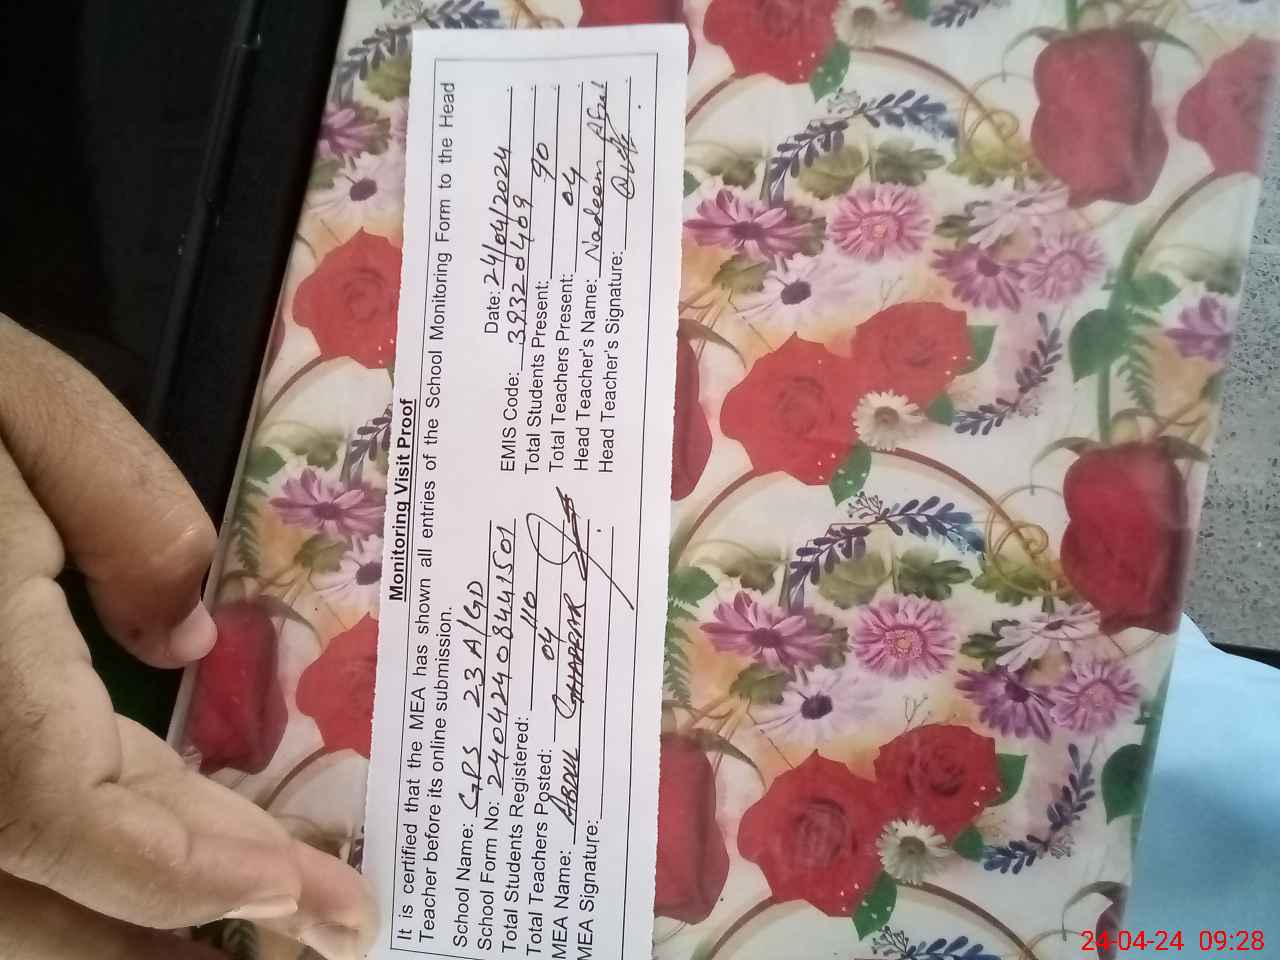 Monitoring Visit Proof
It is certified that the MEA has shown all entries of the School Monitoring Form to the Head
Teacher before its online submission.
School Name: GPS 23 A/GD Date: 24/04/2024
School Form No: 24042408441501 EMIS Code: 39320409
Total Students Registered: 110 Total Students Present: 90
Total Teachers Posted: 04 Total Teachers Present: 04
MEA Name: ABDUL GHAFFAR Head Teacher's Name: Nadeem Afzal
MEA Signature: Head Teacher's Signature:
24-04-24 09:28